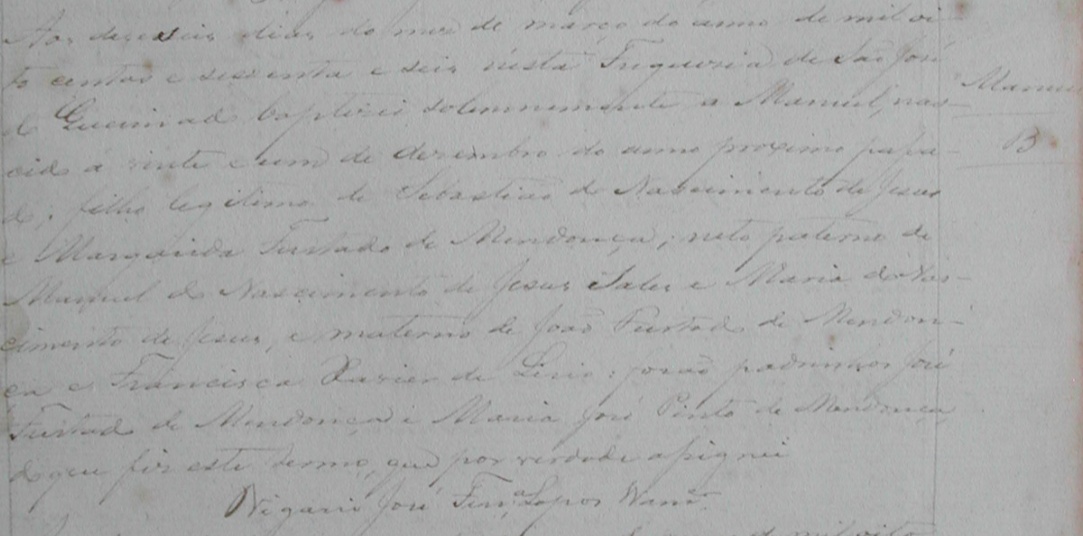 Aos dezeseis dias do mez de março do anno de mil oi-
to centos e sessenta e seis nésta Freguezia de São José
de baptizei solemnemente a Manuel, nas-
cido á vinte e um de dezembro do anno proximo passa-
do; filho legitimo de Sebastião do Nascimento de Jesus
e Margarida Furtado de Mendonça; neto paterno de
Manuel do Nascimento de Jesus Sales e Maria do Nas-
cimento de Jesus, e materno de João Furtado de Mendon-
ça e Francisca Xavier de : forão padrinhos José
Furtado de Mendonça e Maria José Pinto de Mendonça,
do que fiz este termo, que por verdade assignei
Vigario José Lopes
Manuel
B